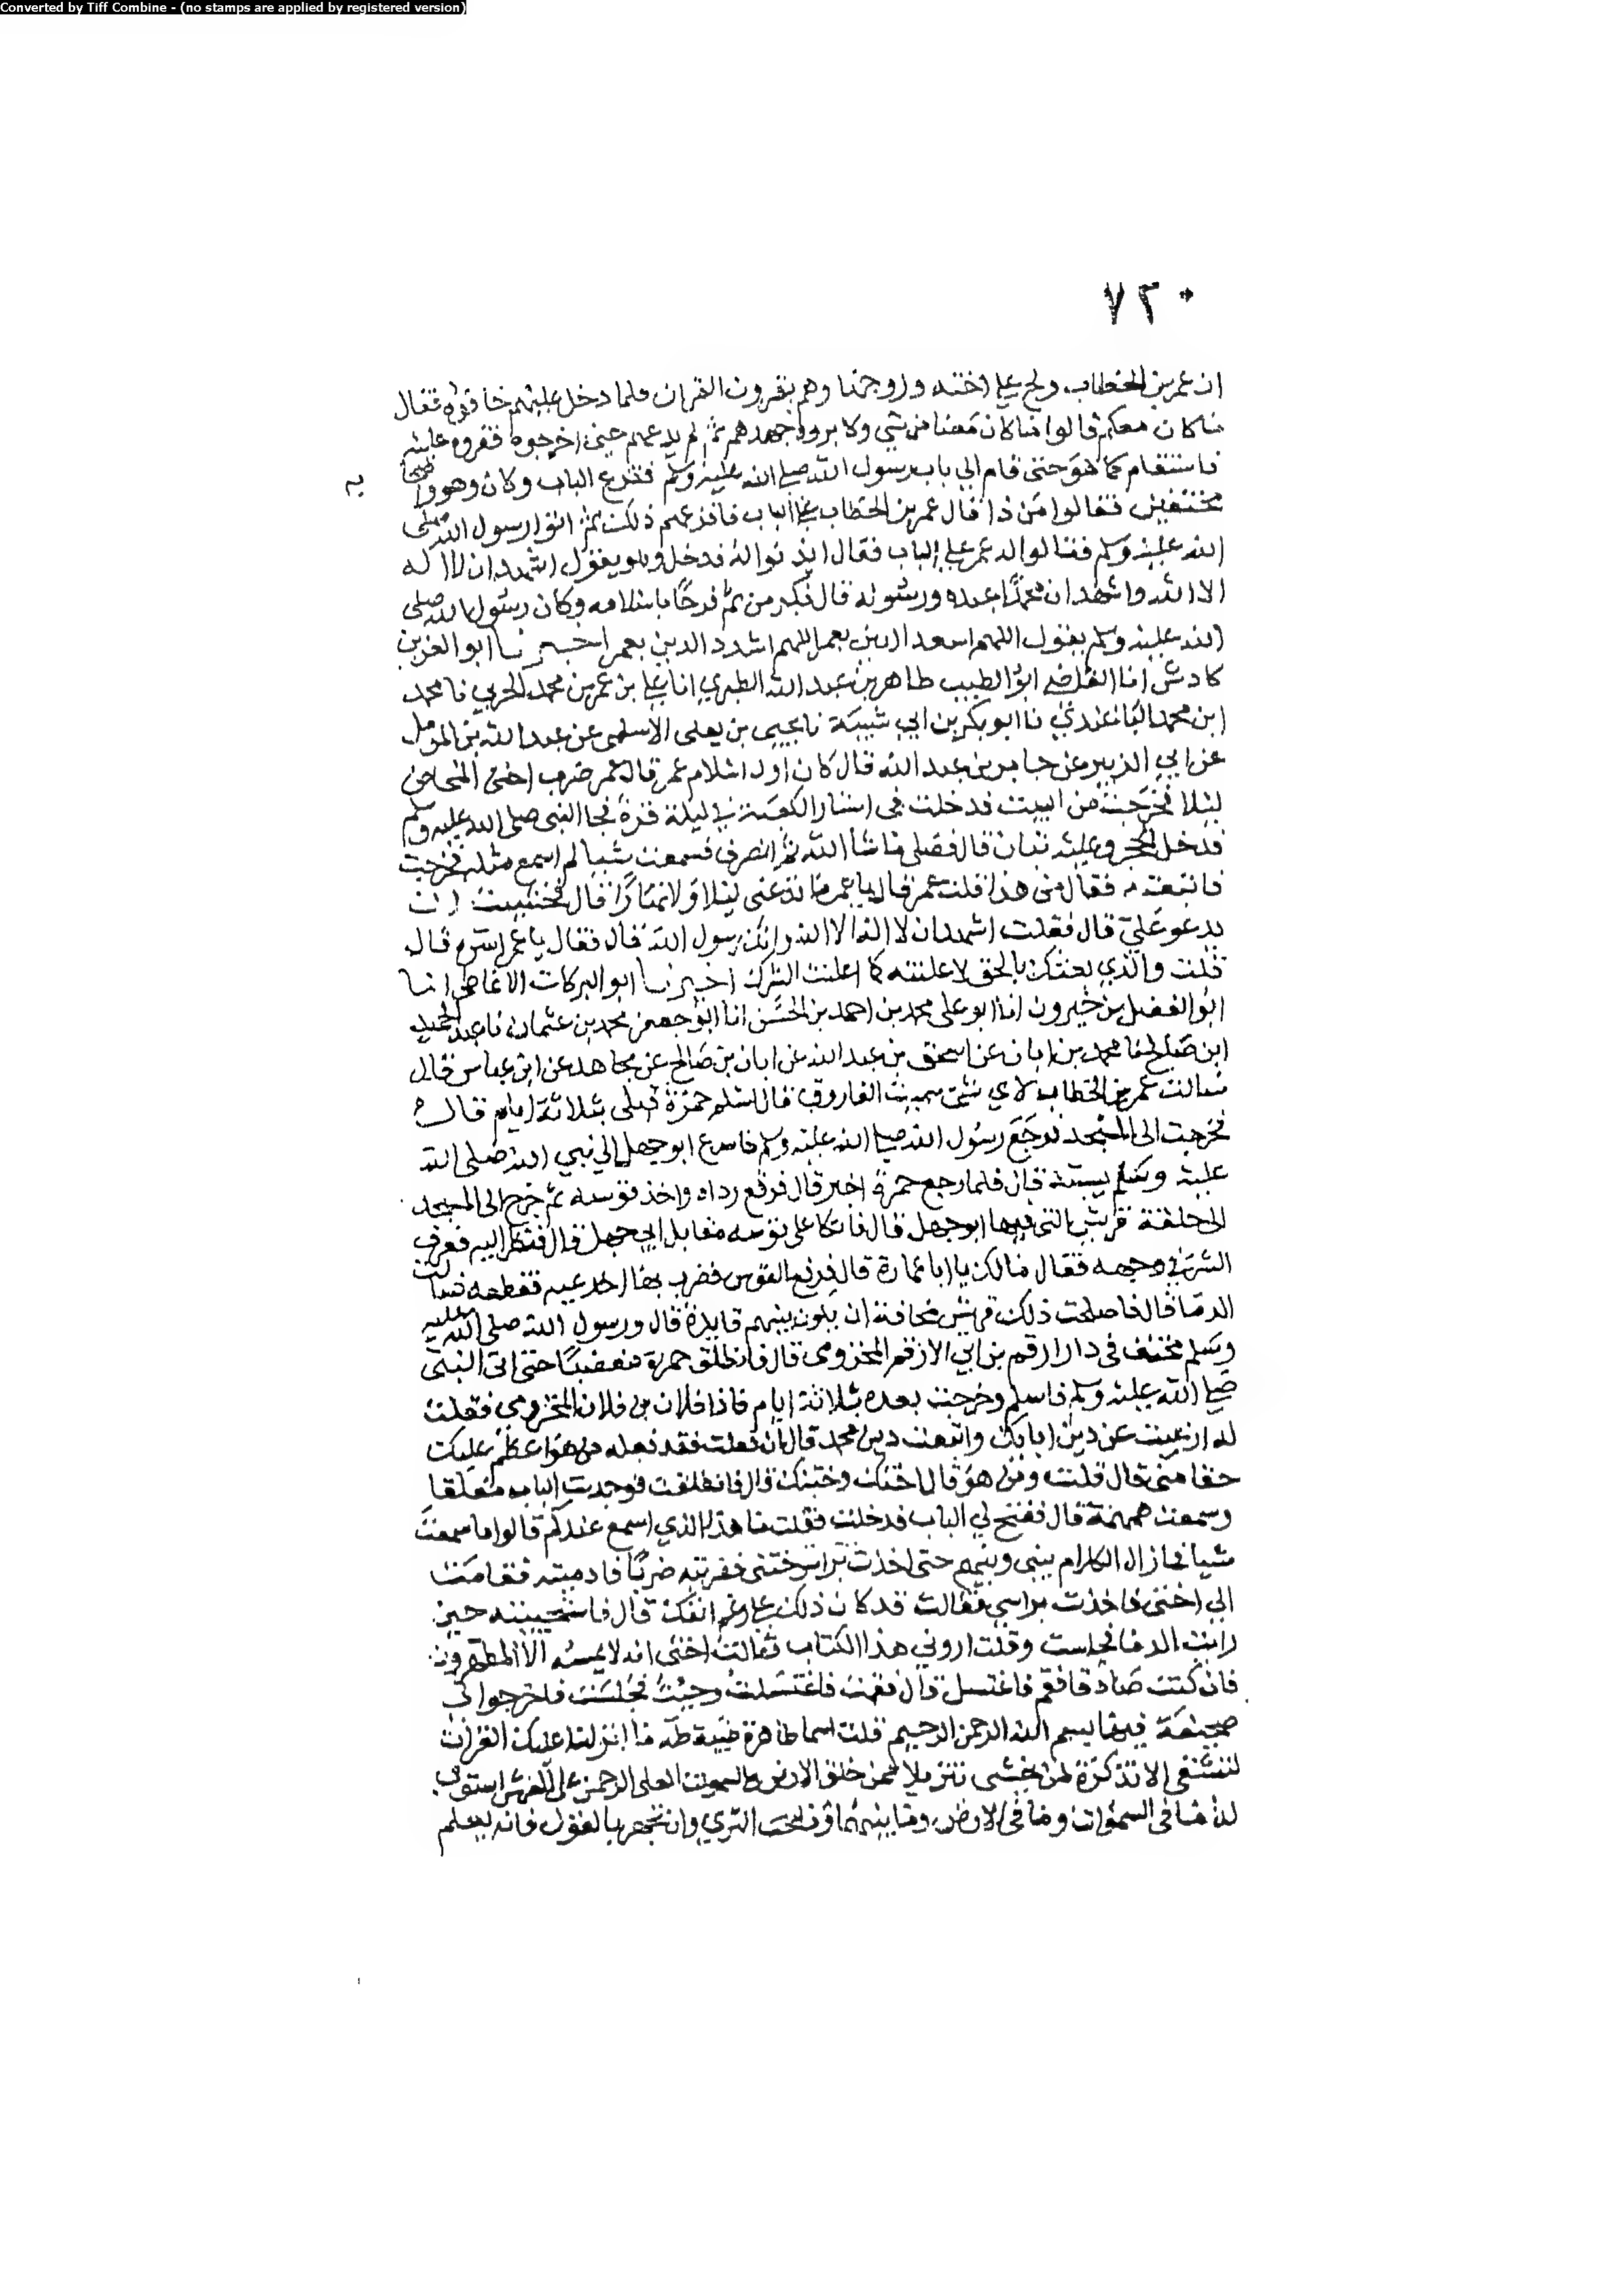 Converted by Tiff Combine - (no stamps are applied by registered version)
٧٢٠
ان عمر بن الخطاب ولج على اخته وزوجها وهم يقرون القران فلما دخل عليهم خافوه فقال
ما كان معكم قالوا ما كان معنا من شي ولا بروا جهدهم ثم لم يدعهم حتى اخرجوه فقروه عليه
فاستقام كما هو حتى قام الى باب رسول الله صلى الله عليه وسلم فقرع الباب وكان وهووا
به
مختفين فقالوا من ذا قال عمر بن الخطاب على الباب فافزعهم ذلك ثم اتوا رسول الله صلى
الله عليه وسلم فقالوا له عمر على الباب فقال ايذنوا له فدخل وهو يقول اشهد ان لا اله
الا الله واشهد ان محمدا عبده ورسوله قال فكبر من ثم فرحا باسلامه وكان رسول الله صلى
الله عليه وسلم يقول اللهم اسعد الدين بعمر اللهم اشدد الدين بعمر اخبرنا ابو العز بن
كادش انا القاضي ابو الطيب طاهر بن عبد الله الطبري انا علي بن عمر بن محمد الحربي نا محمد
ابن محمد الباغندي نا ابو بكر بن ابي شيبة نا يحيى بن يعلى الاسلمي عن عبد الله بن المومل
عن ابي الزبير عن جابر بن عبد الله قال كان اول اسلام عمر قال عمر ضرب اختي المخاض
ليلا فخرجت من البيت فدخلت في استار الكعبة في ليلة قرة فجا النبي صلى الله عليه وسلم
فدخل الحجر وعليه تبان قال فصلى ما شا الله ثم انصرف فسمعت شيا لم اسمع مثله فخرجت
فاتبعته فقال من هذا قلت عمر قال يا عمر ما تدعني ليلا ولا نهارا قال فخشيت ان
يدعو علي قال فقلت اشهد ان لا اله الا الله وانك رسول الله قال فقال يا عمر استره قال
قلت والذي بعثك بالحق لاعلنته كما اعلنت الشرك اخبرنا ابو البركات الانماطي انا
ابو الفضل بن خيرون انا ابو علي محمد بن احمد بن الحسن انا ابو جعفر محمد بن عثمان نا عبد الحميد
ابن صالح نا محمد بن ابان عن اسحق بن عبد الله عن ابان بن صالح عن مجاهد عن ابن عباس قال
سالت عمر بن الخطاب لاي شي سميت الفاروق قال اسلم حمزة قبلي بثلاثة ايام قال
فخرجت الى المسجد فوجع رسول الله صلى الله عليه وسلم فاسرع ابو جهل الى نبي الله صلى الله
عليه وسلم يسبه قال فلما رجع حمزة اخبر قال فرفع رداه واخذ قوسه ثم خرج الى المسجد
الى حلقة قريش التي فيها ابو جهل قال فاتكا على قوسه مقابل ابي جهل قال فنظر اليه فعرف
الشر في وجهه فقال مالك يا ابا عمارة قال فرفع القوس فضرب بها اخدعيه فقطعه فسالت
الدما قال فاصلحت ذلك قريش مخافة ان يكون بينهم قايدة قال ورسول الله صلى الله عليه
وسلم مختف في دار ارقم بن ابي الارقم المخزومي قال فانطلق حمزة مغضبا حتى اتى النبي
صلى الله عليه وسلم فاسلم وخرجت بعده بثلاثة ايام فاذا فلان بن فلان المخزومي فقلت
له ارغبت عن دين ابايك واتبعت دين محمد قال ان فعلت فقد فعله من هو اعظم عليك
حقا مني قال قلت ومن هو قال اختك وختنك قال فانطلقت فوجدت الباب مغلقا
وسمعت همهمة قال ففتح لي الباب فدخلت فقلت ما هذا الذي اسمع عندكم قالوا ما سمعت
شيا فما زال الكلام بيني وبينهم حتى اخذت براس ختني فضربته ضربا فادميته فقامت
الى اختي فاخذت براسي فقالت قد كان ذلك على رغم انفك قال فاستحييت حين
رايت الدما فجلست وقلت اروني هذا الكتاب فقالت اختي انه لا يمسه الا المطهرون
فان كنت صادقا فقم فاغتسل قال فقمت فاغتسلت وجيت فجلست فاخرجوا لي
صحيفة فيها بسم الله الرحمن الرحيم قلت اسما طاهرة طيبة طه ما انزلنا عليك القران
لتشقى الا تذكرة لمن يخشى تنزيلا ممن خلق الارض والسموات العلى الرحمن على العرش استوى
له ما في السموات وما في الارض وما بينهما وما تحت الثري وان تجهر بالقول فانه يعلم